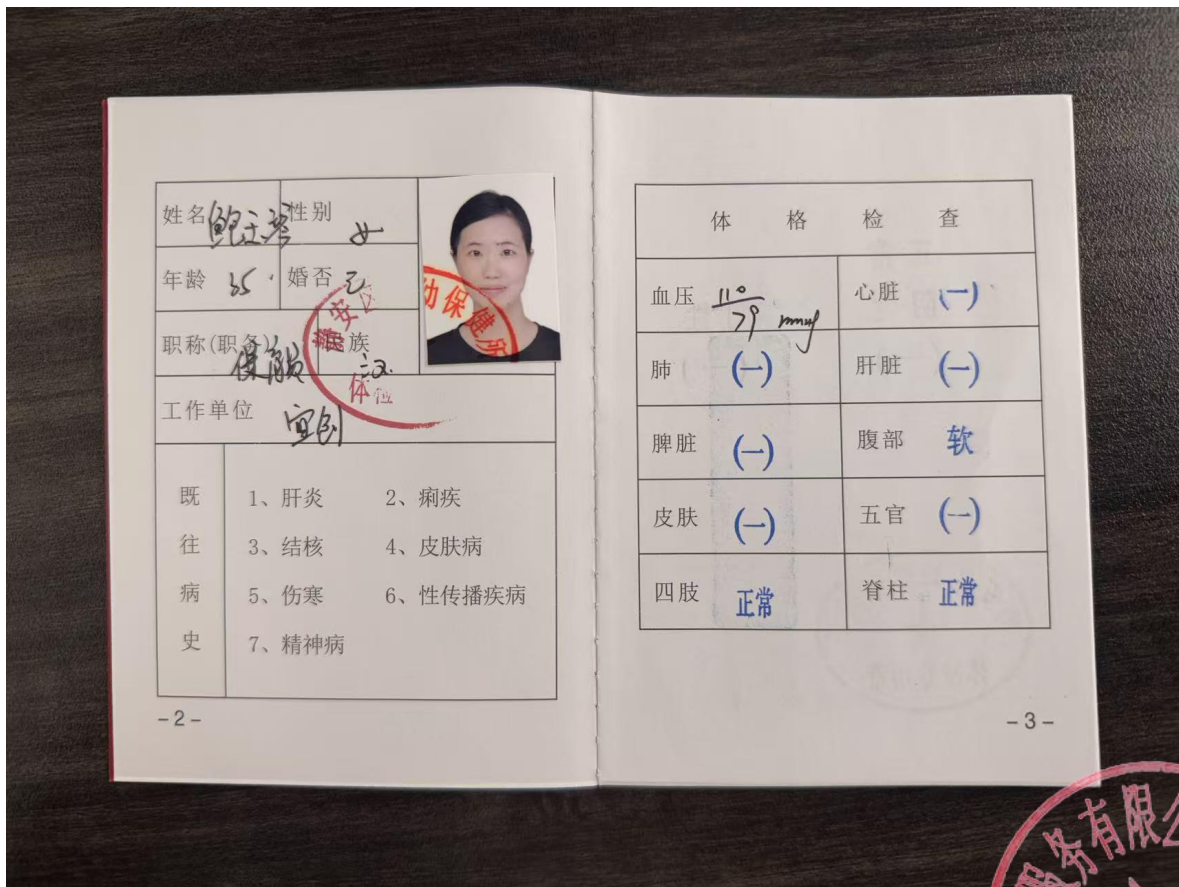 姓名 鲍玉琴 性别 女
年龄 35 婚否 已
职称(职务) 保育员 民族 汉
工作单位 宜创
静安区
幼保健所
体检
既往病史
1、肝炎 2、痢疾
3、结核 4、皮肤病
5、伤寒 6、性传播疾病
7、精神病
-2-
体格检查
血压 110/79 mmHg 心脏 (一)
肺 (一) 肝脏 (一)
脾脏 (一) 腹部 软
皮肤 (一) 五官 (一)
四肢 正常 脊柱 正常
-3-
服务有限公